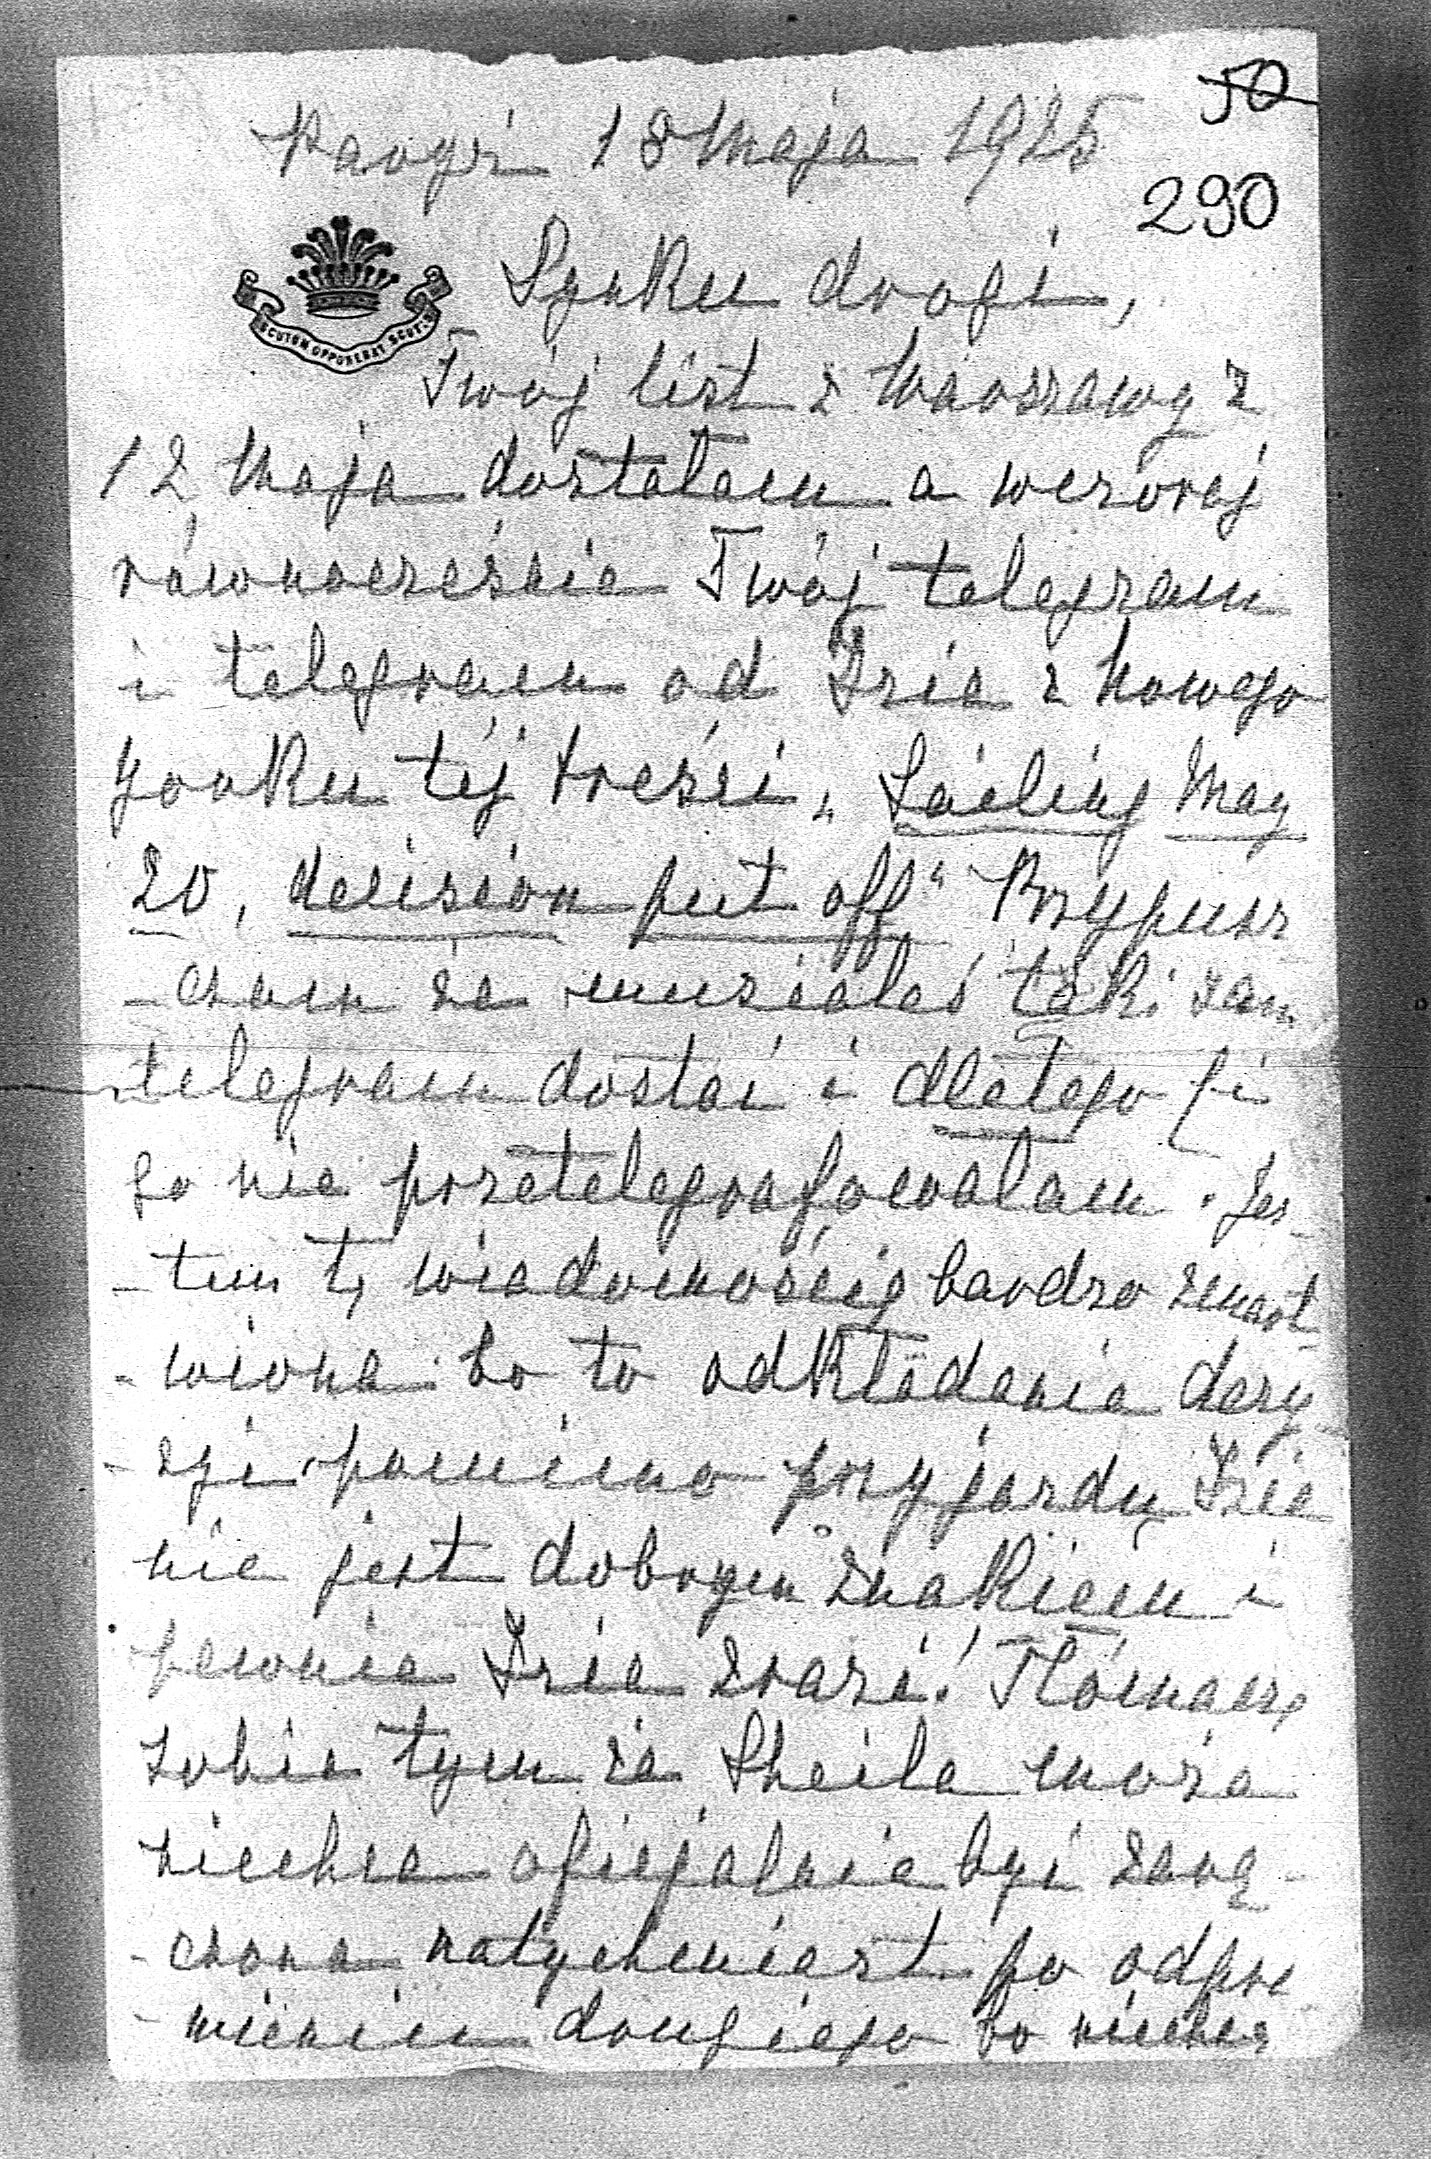 50
290
Paryż 18 Maja 1925
SCUTUM OPPONEBAT SCUTIS
Synku drogi,
Twój list z Warszawy z
12 Maja dostałam a wczoraj
równocześnie Twój telegram
i telegram od Izia z Nowego
Yorku tej treści „Sailing May
20, decision put off" Przypusz
- czam że musiałeś taki sam
telegram dostać i dlatego Ci
go nie przetelegrafowałam. Jes-
- tem tą wiadomością bardzo zmart
- wiona bo to odkładanie decy
- zji pomimo przyjazdu Izia
nie jest dobrym znakiem i
pewnie Izia zrazi! Tłómaczę
sobie tym że Sheila może
niechce oficjalnie być zarę-
- czona natychmiast po odpra
- wieniu drugiego bo niechce